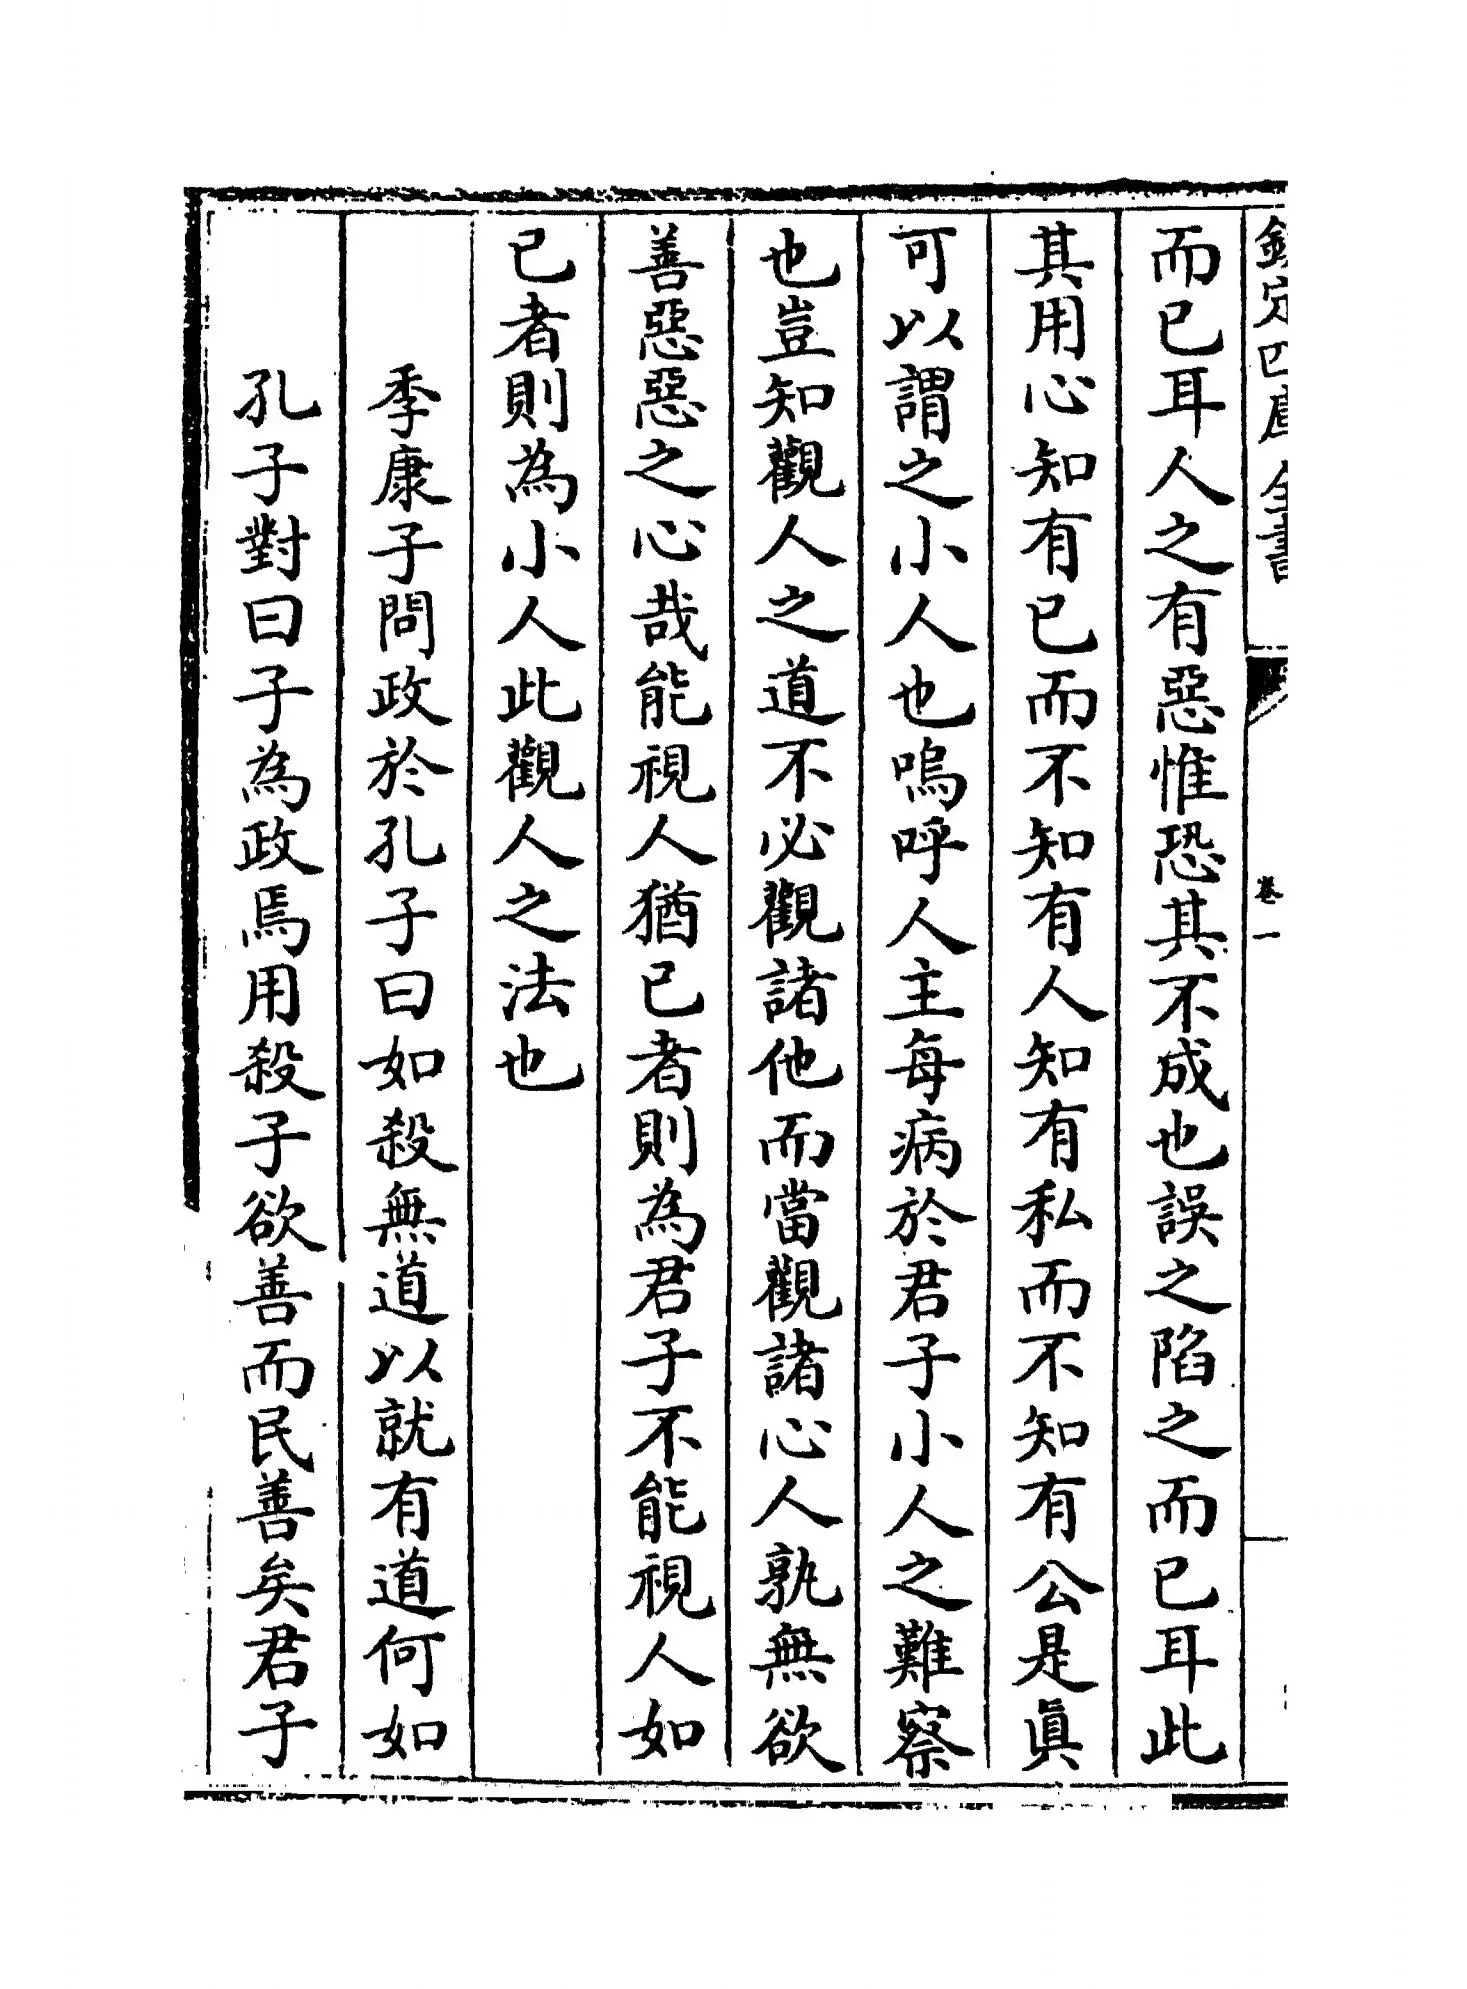 欽定四庫全書
卷一
而已耳人之有惡惟恐其不成也誤之陷之而已耳此
其用心知有已而不知有人知有私而不知有公是眞
可以謂之小人也嗚呼人主每病於君子小人之難察
也豈知觀人之道不必觀諸他而當觀諸心人孰無欲
善惡惡之心哉能視人猶已者則為君子不能視人如
已者則為小人此觀人之法也
季康子問政於孔子曰如殺無道以就有道何如
孔子對曰子為政焉用殺子欲善而民善矣君子